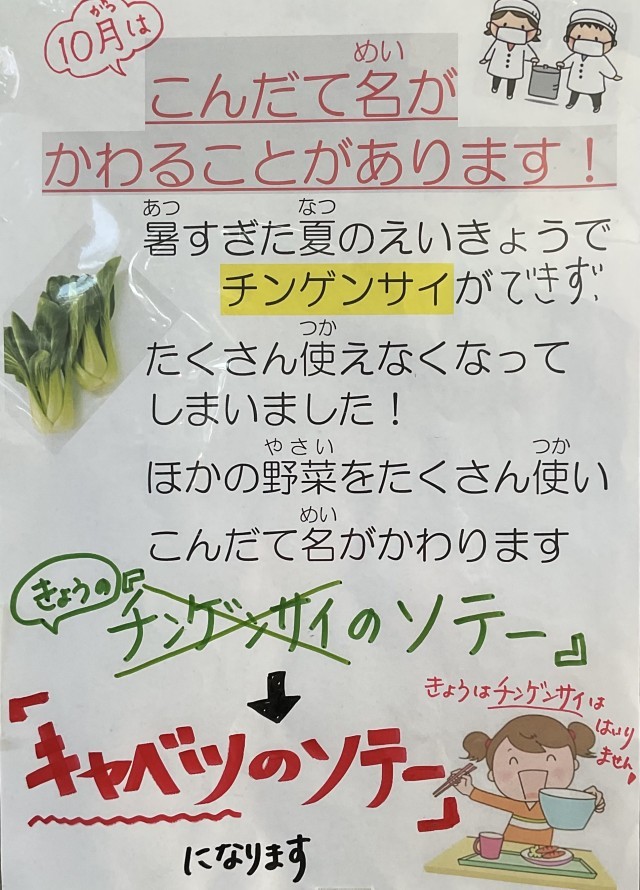 10月は
から
めい
こんだて名が
かわることがあります！
あつ なつ
暑すぎた夏のえいきょうで
チンゲンサイができず、
つか
たくさん使えなくなって
しまいました！
やさい つか
ほかの野菜をたくさん使い
めい
こんだて名がかわります
きょうの
『チンゲンサイのソテー』
「キャベツのソテー」
になります
きょうはチンゲンサイは
はいり
ません